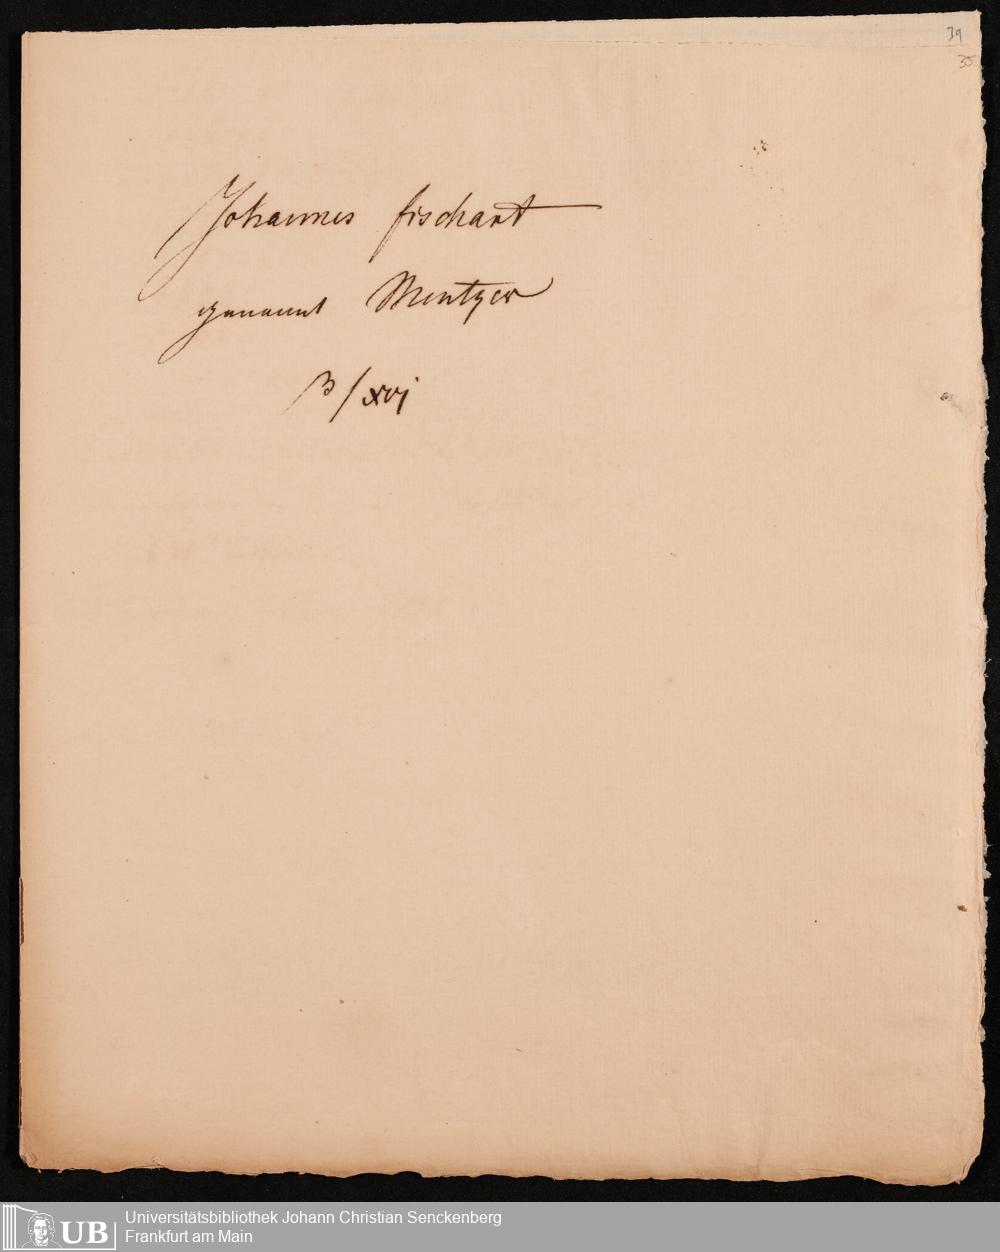 39
35
Johannes fischart
genannt Mentzer
β/xvj
UB
Universitätsbibliothek Johann Christian Senckenberg
Frankfurt am Main